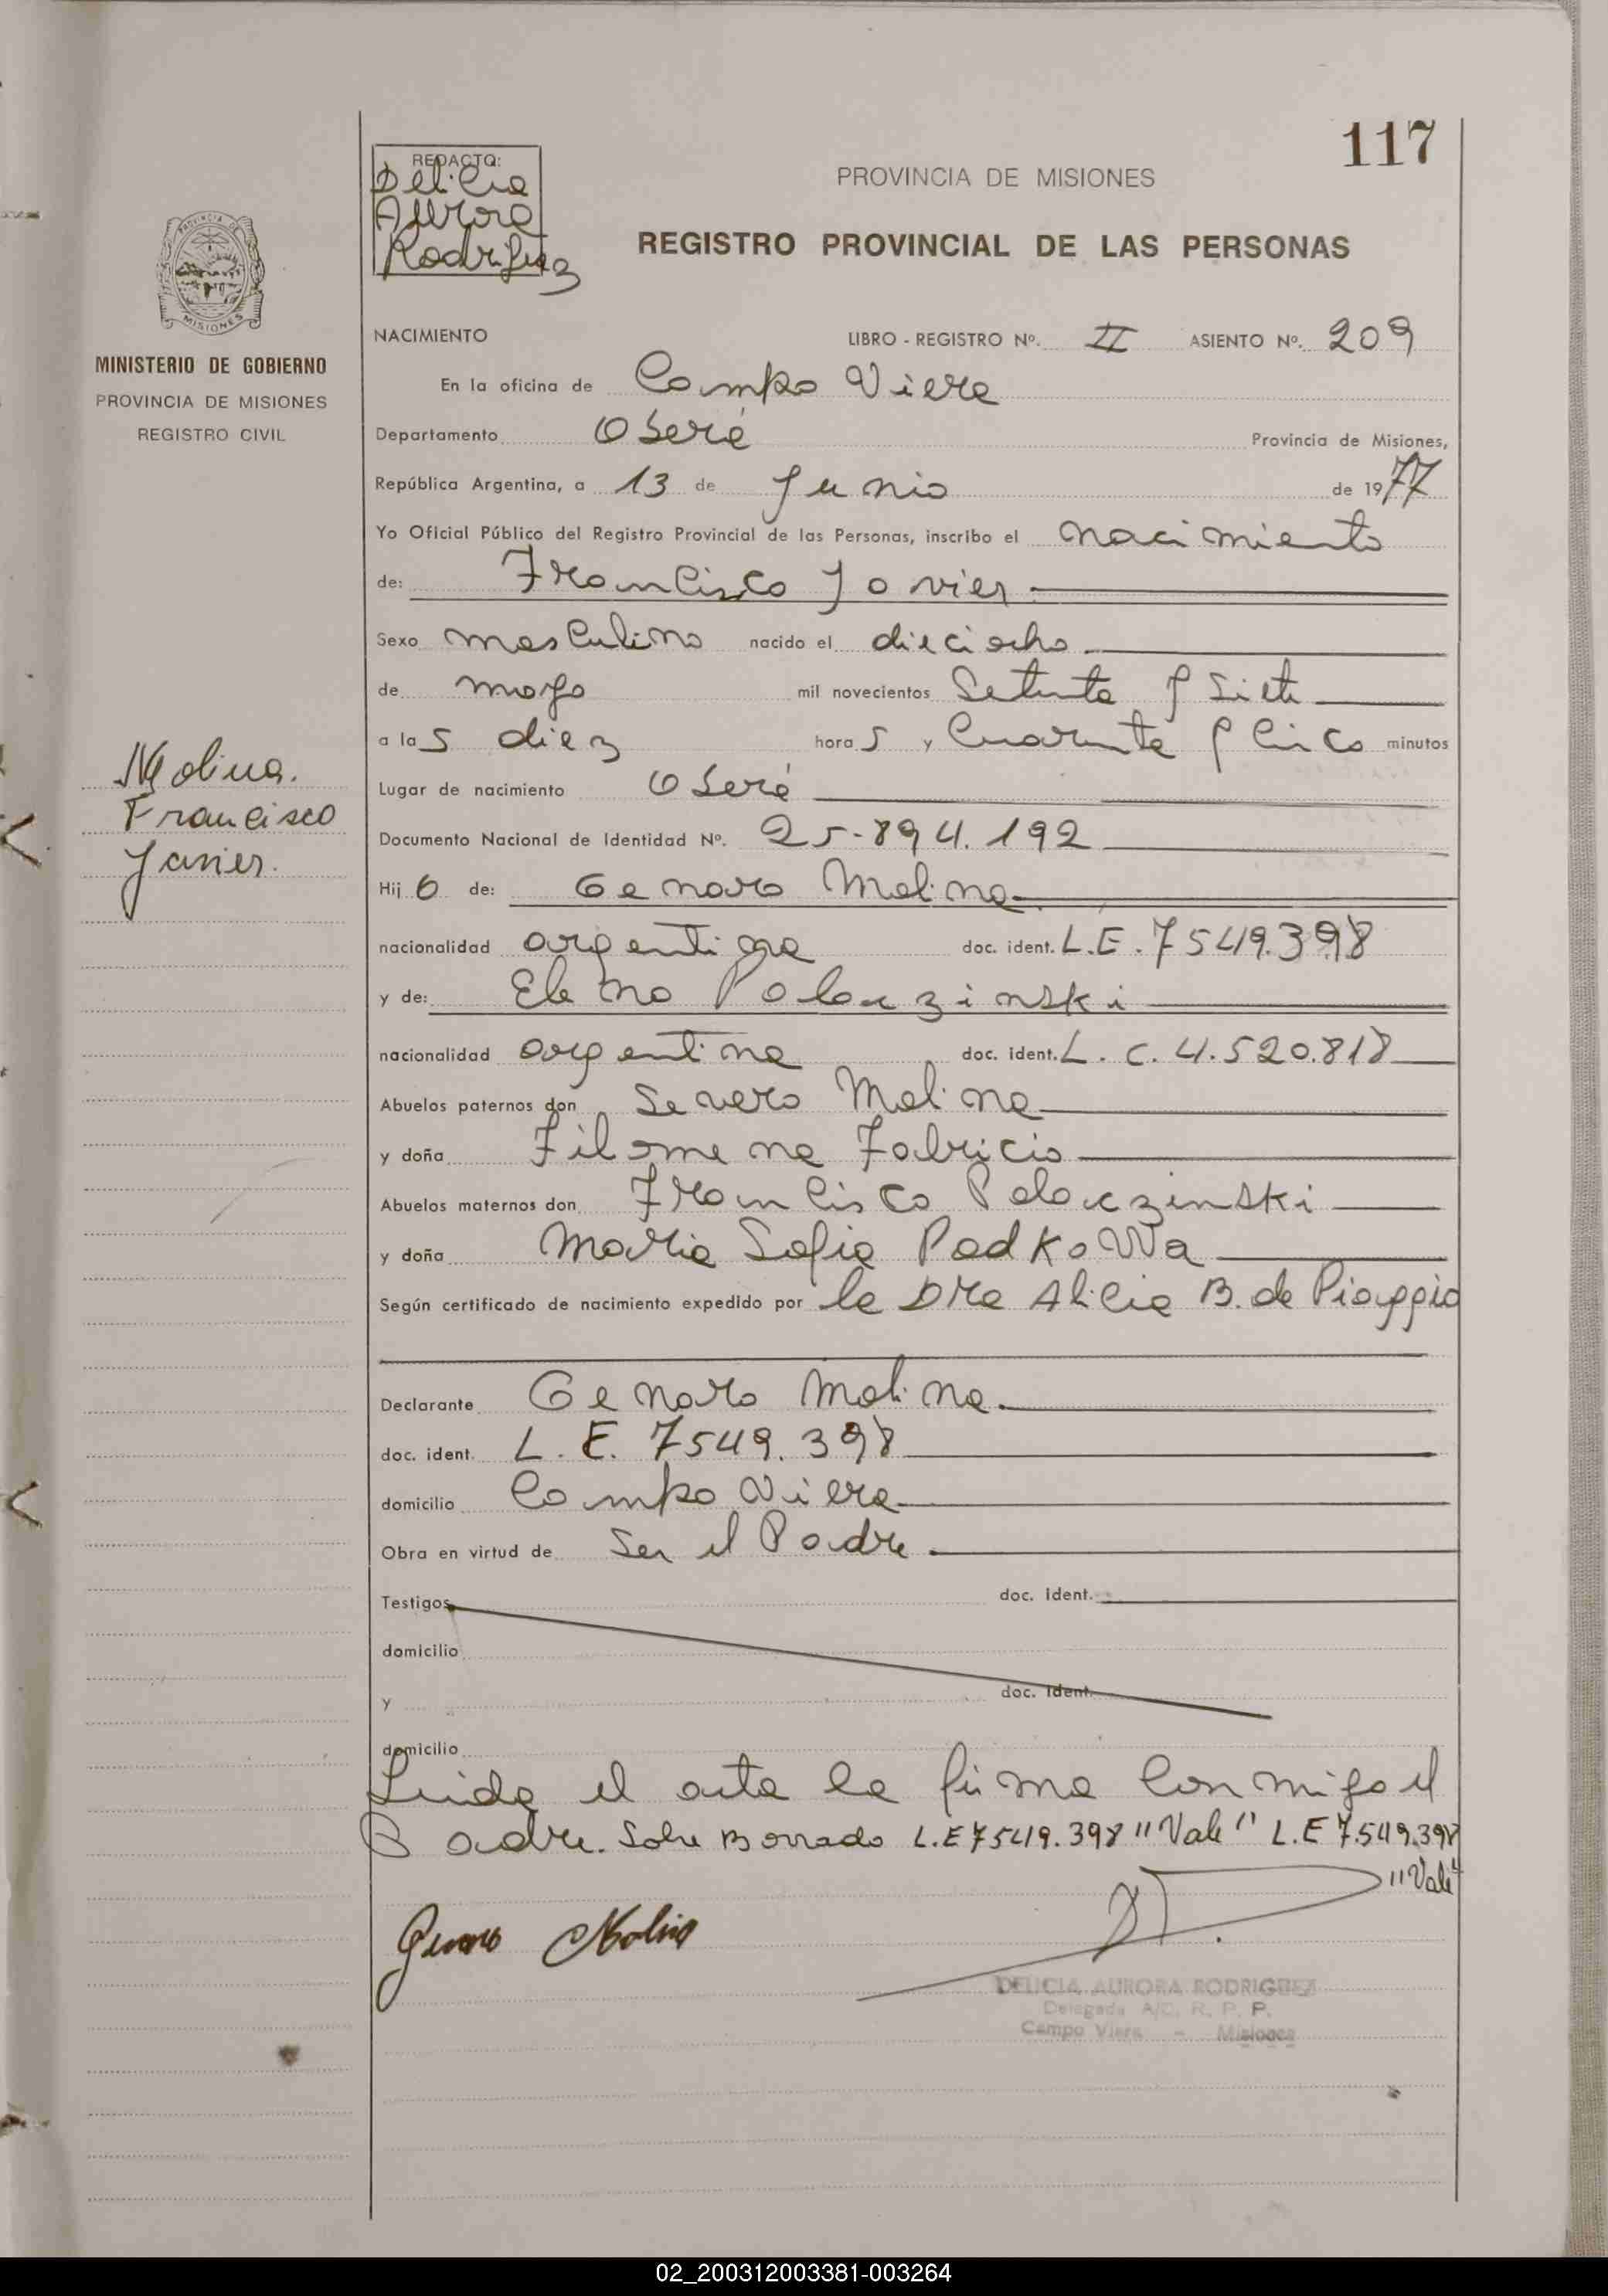 117
REDACTO:
Delicia
Aurora
Rodriguez
PROVINCIA DE MISIONES
REGISTRO PROVINCIAL DE LAS PERSONAS
MISIONES
MINISTERIO DE GOBIERNO
PROVINCIA DE MISIONES
REGISTRO CIVIL
NACIMIENTO LIBRO - REGISTRO Nº. II ASIENTO Nº. 209
En la oficina de Campo Viera
Departamento Oberá Provincia de Misiones,
República Argentina, a 13 de Junio de 1977
Yo Oficial Público del Registro Provincial de las Personas, inscribo el nacimiento
de: Francisco Javier
Sexo masculino nacido el dieciocho
de mayo mil novecientos Setenta y Siete
a las diez horas y Cuarenta y Cinco minutos
Molina.
Francisco
Javier.
Lugar de nacimiento Oberá
Documento Nacional de Identidad Nº. 25-894.192
Hijo de: Genaro Molina
nacionalidad argentina doc. ident. L.E. 7549.398
y de: Elena Polaczinski
nacionalidad argentina doc. ident. L.C. 4.520.818
Abuelos paternos don Severo Molina
y doña Filomena Fabricio
Abuelos maternos don Francisco Polaczinski
y doña Maria Sofia Podkowa
Según certificado de nacimiento expedido por la Dra Alicia B. de Piaggio
Declarante Genaro Molina
doc. ident. L.E. 7549.398
domicilio Campo Viera
Obra en virtud de Ser el Padre
Testigos doc. ident.
domicilio
y doc. ident.
domicilio
Leida el acta la firma conmigo el
Padre. Sobre Borrado L.E 7549.398 "Vale" L.E 7.549.398
"Vale"
Genaro Molina
DELICIA AURORA RODRIGUEZ
Delegada A/C. R. P. P.
Campo Viera - Misiones
02_200312003381-003264